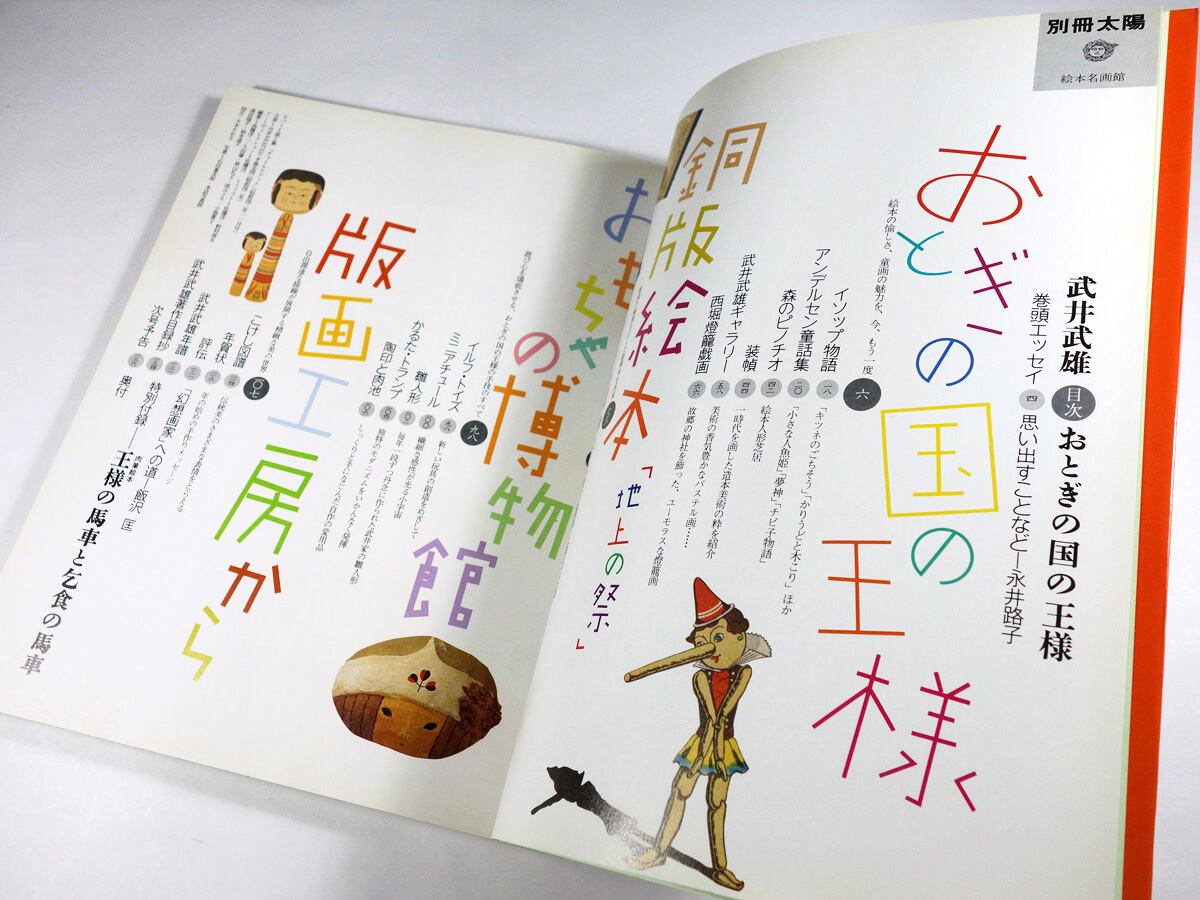 別冊太陽
絵本名画館
武井武雄
目次
おとぎの国の王様
巻頭エッセイ
四
思い出すことなど―永井路子
おとぎの国の王様
絵本の愉しさ、童画の魅力を、今、もう一度
六
イソップ物語
一八
「キツネのごちそう」「かりうどと木こり」ほか
アンデルセン童話集
三〇
「小さな人魚姫」「夢神」「チビ子物語」
森のピノチオ
四二
絵本人形芝居
装幀
四四
一時代を画した造本美術の粋を紹介
武井武雄ギャラリー
五八
美術の香気豊かなパステル画……
西堀燈籠戯画
六六
故郷の神社を飾った、ユーモラスな燈籠画
銅版絵本「地上の祭」
おもちゃの博物館
遊び心を堪能させる、おとぎの国の王様の手技のすべて
九八
イルフ・トイズ
九八
新しい玩具の創造をめざして
ミニアチュール
繊細な感性が光る小宇宙
雛人形
毎年一段ずつ丹念に作られた武井家の雛人形
かるた・トランプ
独特のモダニズムをいかんなく発揮
陶印と肉池
しっくりと手になじんだ自作の愛用品
版画工房から
一〇七
こけし図譜
伝統美のさまざまな表情をとらえる
年賀状
年の始めの手作りメッセージ
武井武雄 評伝
「幻想画家」への道―飯沢 匡
武井武雄年譜
武井武雄著作目録抄
次号予告
奥付
特別付録――
肉筆絵本
王様の馬車と乞食の馬車